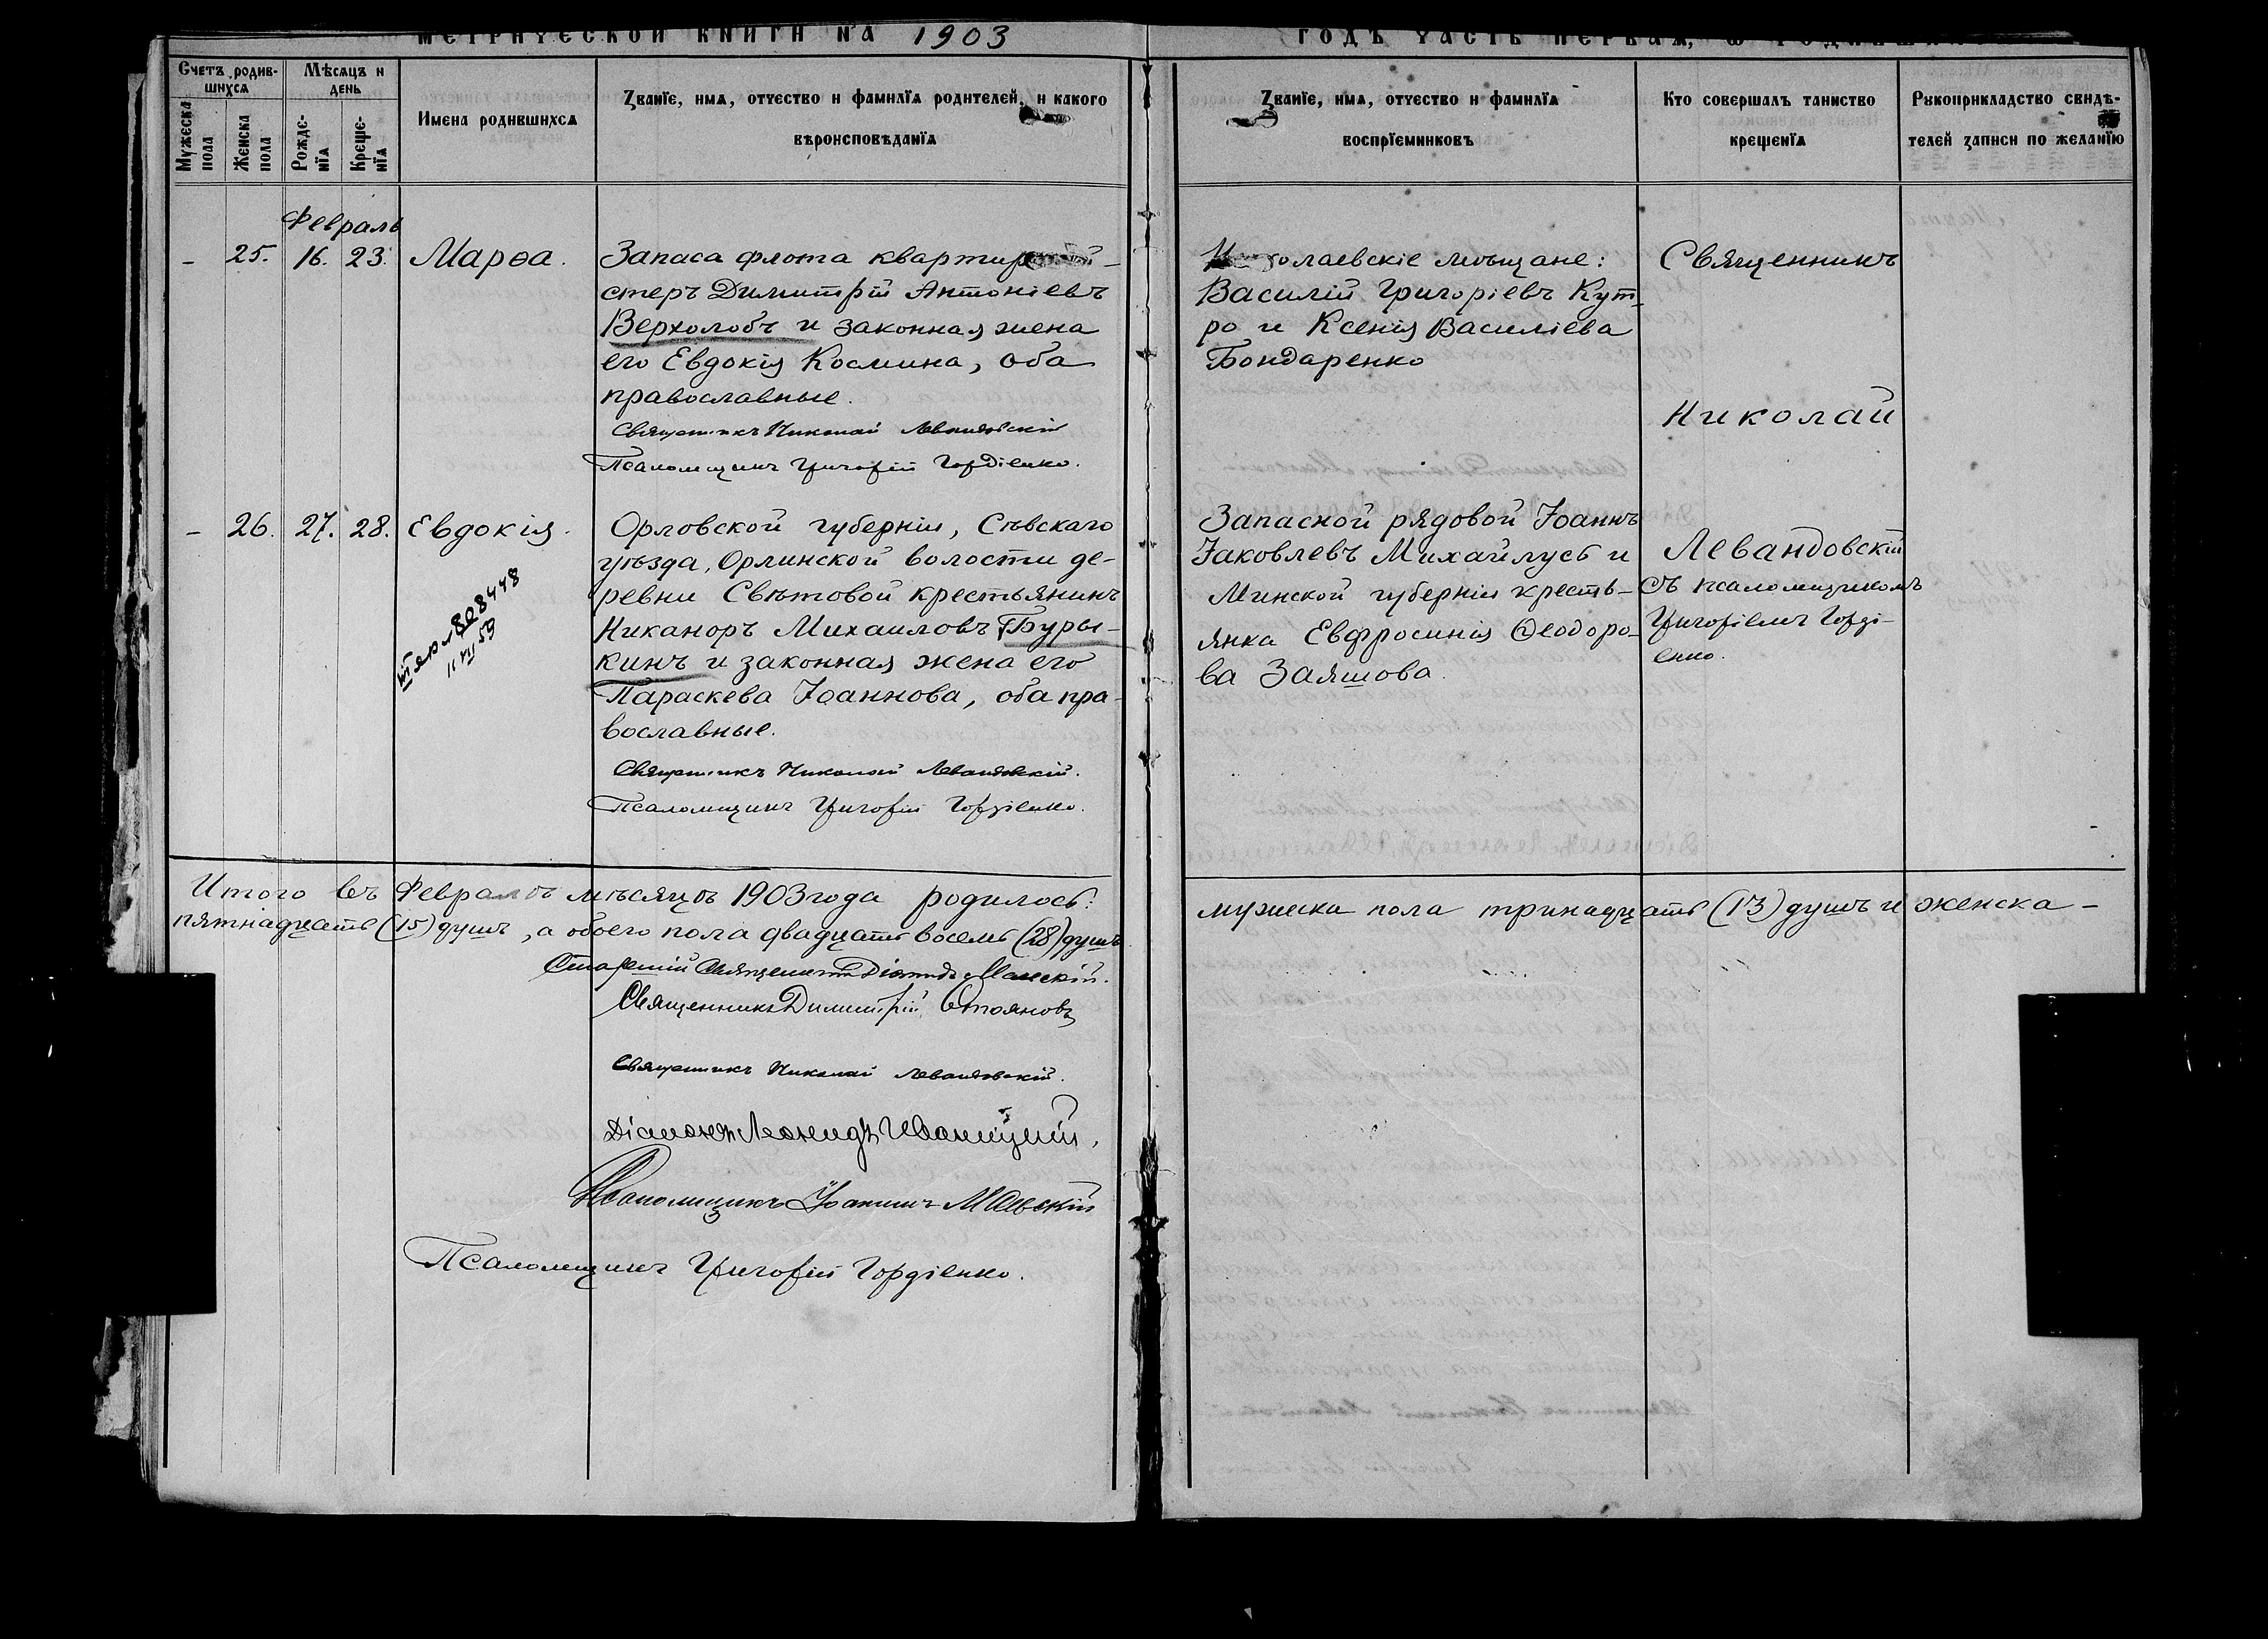 МЕТРИЧЕСКОЙ КНИГИ НА 1903
ГОДЪ ЧАСТЬ ПЕРВАЯ,
Счетъ родив-
шихся
Мѣсяцъ и
день
Мужеска
пола
Женска
пола
Рожде-
нія
Креще-
нія
Имена родившихся
Званіе, имя, отчество и фамилія родителей, и какого
вѣроисповѣданія
Званіе, имя, отчество и фамилія
воспріемниковъ
Кто совершалъ таинство
крещенія
Рукоприкладство свидѣ-
телей записи по желанію
Февраль
- 25. 16. 23. Марѳа.
Запаса флота квартир
стеръ Димитрій Антоніевъ
Верхолобъ и законная жена
его Евдокія Космина, оба
православные.
Священникъ Николай Левандовскій
Псаломщикъ Григорій Гордіенко.
Николаевскіе мѣщане:
Василій Григоріевъ Кут-
ро и Ксенія Василіева
Бондаренко
Священникъ
Николай
Левандовскій
съ псаломщикомъ
Григоріемъ Горді-
енко.
- 26. 27. 28. Евдокія.
808448
11 VII 59
Орловской губерніи, Сѣвскаго
уѣзда, Орлинской волости де-
ревни Свѣтовой крестьянинъ
Никаноръ Михаиловъ Буры-
кинъ и законная жена его
Параскева Іоаннова, оба пра-
вославные.
Священникъ Николай Левандовскій.
Псаломщикъ Григорій Гордіенко.
Запасной рядовой Іоаннъ
Іаковлевъ Михайлусь и
Минской губерніи кресть-
янка Евфросинія Ѳеодоро-
ва Заяшова.
Итого въ Февралѣ мѣсяцѣ 1903 года родилось:
мужеска пола тринадцать (13) душъ и женска -
пятнадцать (15) душъ, а обоего пола двадцать восемь (28) душъ
Старшій Священникъ
Священникъ Димитрій Стояновъ
Священникъ Николай Левандовскій.
Діаконъ Леонидъ Иваницкій.
Псаломщикъ Іоакимъ
Псаломщикъ Григорій Гордіенко.